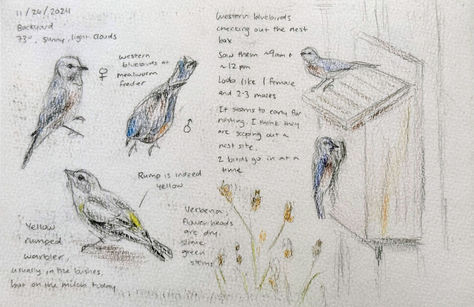 11/26/2024
Backyard
73°, sunny, light clouds
♀
Western
bluebirds at
mealworm
feeder
♂
Western bluebirds
checking out the nest
box
Saw them ~9am +
~12 pm
Looks like 1 female
and 2-3 males
It seems to early for
nesting. I think they
are scoping out a
nest site.
2 birds go in at a
time
Rump is indeed
yellow
Yellow
rumped
warbler,
usually in the bushes,
but on the mulch today
Verbena,
flower heads
are dry,
some
green
stems